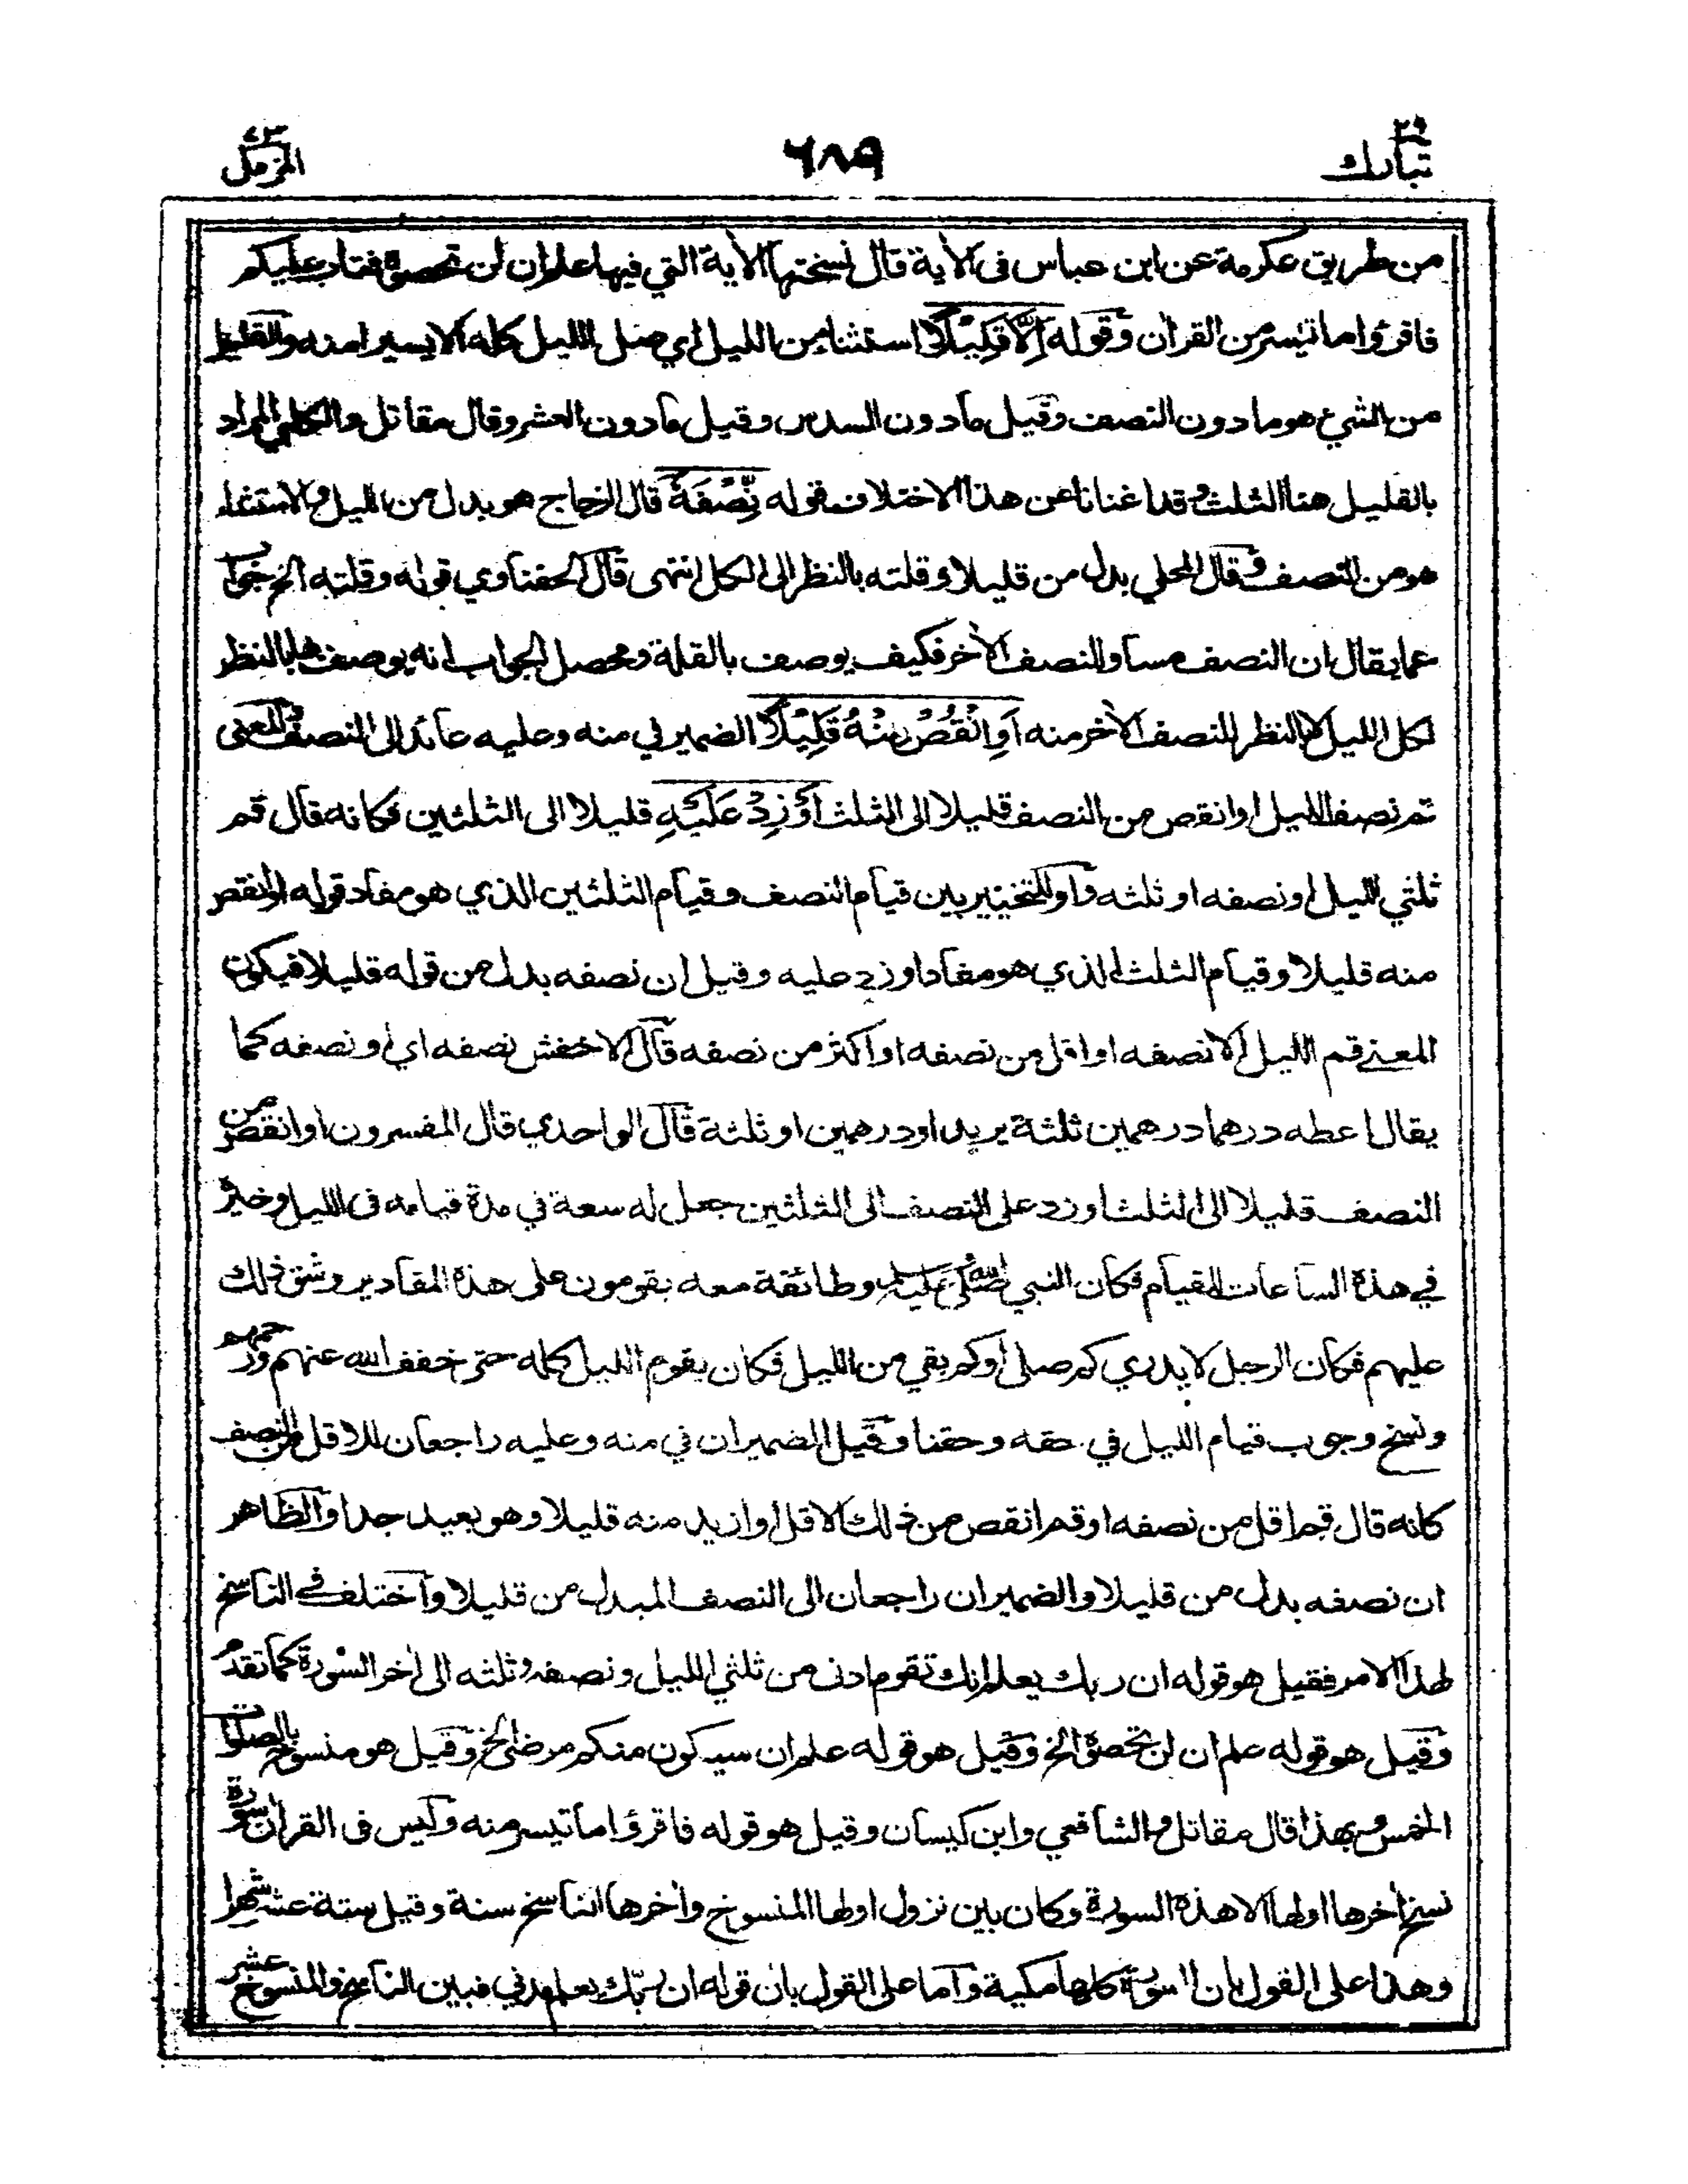 ٢٩
تبارك
٦٨٩
٧٣
المزمل
من طريق عكرمة عن ابن عباس في الاية قال نسختها الاية التي فيها علم ان لن تحصوه فتاب عليكم
فاقرؤا ما تيسر من القران وقوله اِلَّا قَلِيْلًا استثنا من الليل اي صل الليل كله الا يسيرا منه والقليل
من الشئ هو ما دون النصف وقيل ما دون السدس وقيل ما دون العشر وقال مقاتل والكلبي المراد
بالقليل هنا الثلث وقد اغنانا عن هذا الاختلاف قوله نِّصْفَهٗ قال الزجاج هو بدل من الليل والاستثناء
هو من النصف وقال المحلي بدل من قليلا وقلته بالنظر الى الكل انتهى قال الحفناوي قوله وقلته الخ جواب
عما يقال ان النصف مساو للنصف الاٰخر فكيف يوصف بالقلة ومحصل الجواب انه يوصف بها بالنظر
لكل الليل لا بالنظر للنصف الاٰخر منه اَوِ انْقُصْ مِنْهُ قَلِيْلًا الضمير في منه وعليه عائد الى النصف والمعنى
قم نصف الليل او انقص من النصف قليلا الى الثلث اَوْ زِدْ عَلَيْهِ قليلا الى الثلثين فكانه قال قم
ثلثي الليل او نصفه او ثلثه واو للتخيير بين قيام النصف وقيام الثلثين الذي هو مفاد قوله او انقص
منه قليلا وقيام الثلث الذي هو مفاد او زد عليه وقيل ان نصفه بدل من قوله قليلا فيكون
المعنى قم الليل الا نصفه او اقل من نصفه او اكثر من نصفه قال الاخفش نصفه اي او نصفه كما
يقال اعطه درهما درهمين ثلثة يريد او درهمين او ثلثة قال الواحدي قال المفسرون او انقص من
النصف قليلا الى الثلث او زد على النصف الى الثلثين جعل له سعة في مدة قيامه فى الليل وخيره
في هذه الساعات للقيام فكان النبي صلى الله عليه وسلم وطائفة معه يقومون على هذه المقادير وشق ذلك
عليهم فكان الرجل لا يدري كم صلى او كم بقي من الليل فكان يقوم الليل كله حتى خفف الله عنهم ورحمهم
ونسخ وجوب قيام الليل في حقه وحقنا وقيل الضميران في منه وعليه راجعان للاقل من النصف
كانه قال قم اقل من نصفه او قم انقص من ذلك الاقل او ازيد منه قليلا وهو بعيد جدا والظاهر
ان نصفه بدل من قليلا والضميران راجعان الى النصف المبدل من قليلا واختلف في الناسخ
لهذا الامر فقيل هو قوله ان ربك يعلم انك تقوم ادنى من ثلثي الليل ونصفه وثلثه الى اٰخر السورة كما تقدم
وقيل هو قوله علم ان لن تحصوه الخ وقيل هو قوله علم ان سيكون منكم مرضى الخ وقيل هو منسوخ بالصلوات
الخمس وبهذا قال مقاتل والشافعي وابن كيسان وقيل هو قوله فاقرؤا ما تيسر منه وليس فى القراٰن سورة
نسخ اٰخرها اولها الا هذه السورة وكان بين نزول اولها المنسوخ واٰخرها الناسخ سنة وقيل ستة عشر شهرا
وهذا على القول بان السورة كلها مكية واما على القول بان قوله ان ربك يعلم مدني فبين الناسخ والمنسوخ عشر